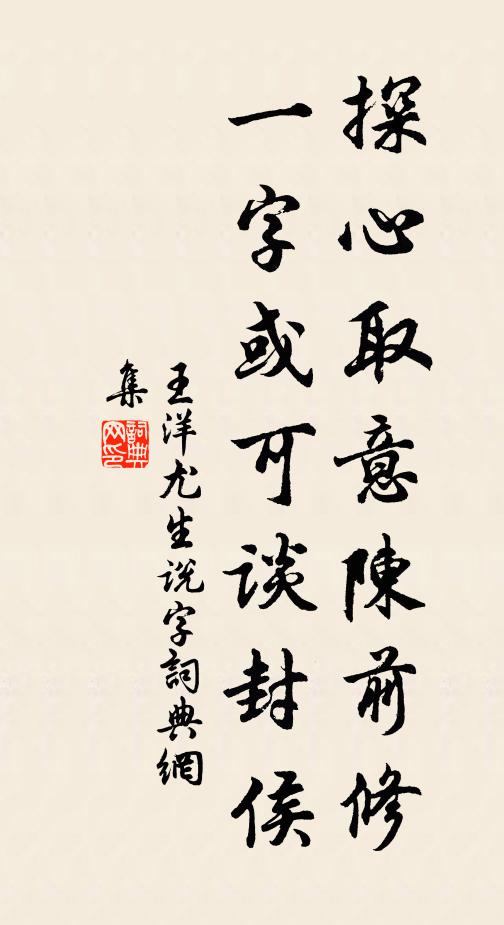 探心取意陳前修
一字或可談封侯
王洋尤生说字詞典網
集
詞典网印